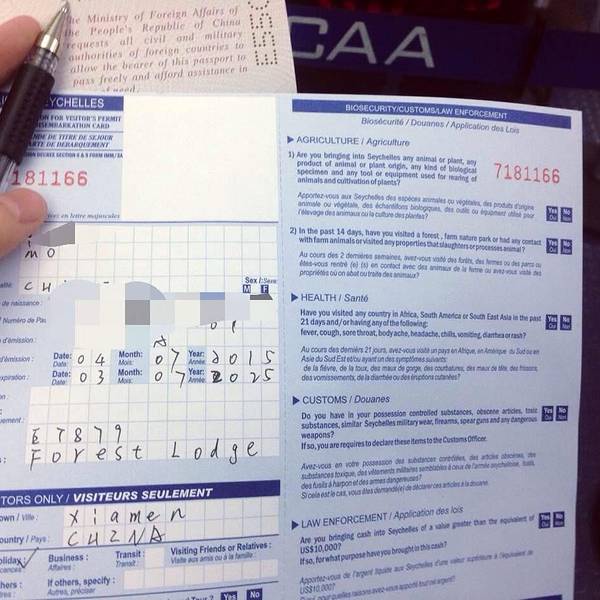 he Ministry of Foreign Affairs of
he People's Republic of China
requests all civil and military
authorities of foreign countries to
allow the bearer of this passport to
pass freely and afford assistance in
of need.
CAA
SEYCHELLES
ON FOR VISITOR'S PERMIT
DISEMBARKATION CARD
DE DE TITRE DE SEJOUR
CARTE DE DEBARQUEMENT
181166
en lettre majuscules
M O
C H
Sex / Sexe
M F
de naissance :
Numéro de Pas
0 1
d'émission :
d'émission : Date: 0 4 Month: 0 7 Year: 2 0 1 5
expiration : Date: 0 3 Month: 0 7 Year: 2 0 2 5
E 7 8 7 9
Forest Lodge
TORS ONLY / VISITEURS SEULEMENT
own / Ville : Xiamen
ountry / Pays : CHINA
oliday Business : Transit : Visiting Friends or Relatives :
cances Affaires : Transit : Visite aux amis ou à la famille :
hers : If others, specify :
Autres, préciser
Yes No
BIOSECURITY/CUSTOMS/LAW ENFORCEMENT
Biosécurité / Douanes / Application des Lois
AGRICULTURE / Agriculture
7181166
1) Are you bringing into Seychelles any animal or plant, any
product of animal or plant origin, any kind of biological
specimen and any tool or equipment used for rearing of
animals and cultivation of plants?
Apportez-vous aux Seychelles des espèces animales ou végétales, des produits d'origine
animale ou végétale, des échantillons biologiques, des outils ou équipment utilisé pour
l'élevage des animaux où la culture des plantes?
Yes No
Oui Non
2) In the past 14 days, have you visited a forest , farm nature park or had any contact
with farm animals or visited any properties that slaughters or processes animal ?
Au cours des 2 dernières semaines, avez-vous visité des forêts, des fermes ou des parcs ou
êtes-vous rentré (e) (s) en contact avec des animaux de la ferme ou avez-vous visité des
propriétés où on abat ou traite des animaux?
Yes No
Oui Non
HEALTH / Santé
Have you visited any country in Africa, South America or South East Asia in the past
21 days and/or having any of the following:
fever, cough, sore throat, body ache, headache, chills, vomiting, diarrhea or rash?
Au cours des derniers 21 jours, avez-vous visité un pays en Afrique, en Amérique du Sud ou en
Asie du Sud Est et/ou ayant un des symptômes suivants:
de la fièvre, de la toux, des maux de gorge, des courbatures, des maux de tête, des frissons,
des vomissements, de la diarrhée ou des éruptions cutanées?
Yes No
Oui Non
CUSTOMS / Douanes
Do you have in your possession controlled substances, obscene articles, toxic
substances, similar Seychelles military wear, firearms, spear guns and any dangerous
weapons?
If so, you are requires to declare these items to the Customs Officer.
Avez-vous en votre possession des substances contrôlées, des articles obscènes, des
substances toxique, des vêtements militaires semblables à ceux de l'armée seychelloise, fusils,
des fusils à harpon et des armes dangereuses?
Si cela est le cas, vous êtes demandé(e) de déclarer ces articles à la douane.
Yes No
Oui Non
LAW ENFORCEMENT / Application des lois
Are you bringing cash into Seychelles of a value greater than the equivalent of
US$10,000?
If so, for what purpose have you brought in this cash?
Apportez-vous de l'argent liquide aux Seychelles d'une valeur supérieure à l'équivalent de
US$10,000?
Yes No
Oui Non